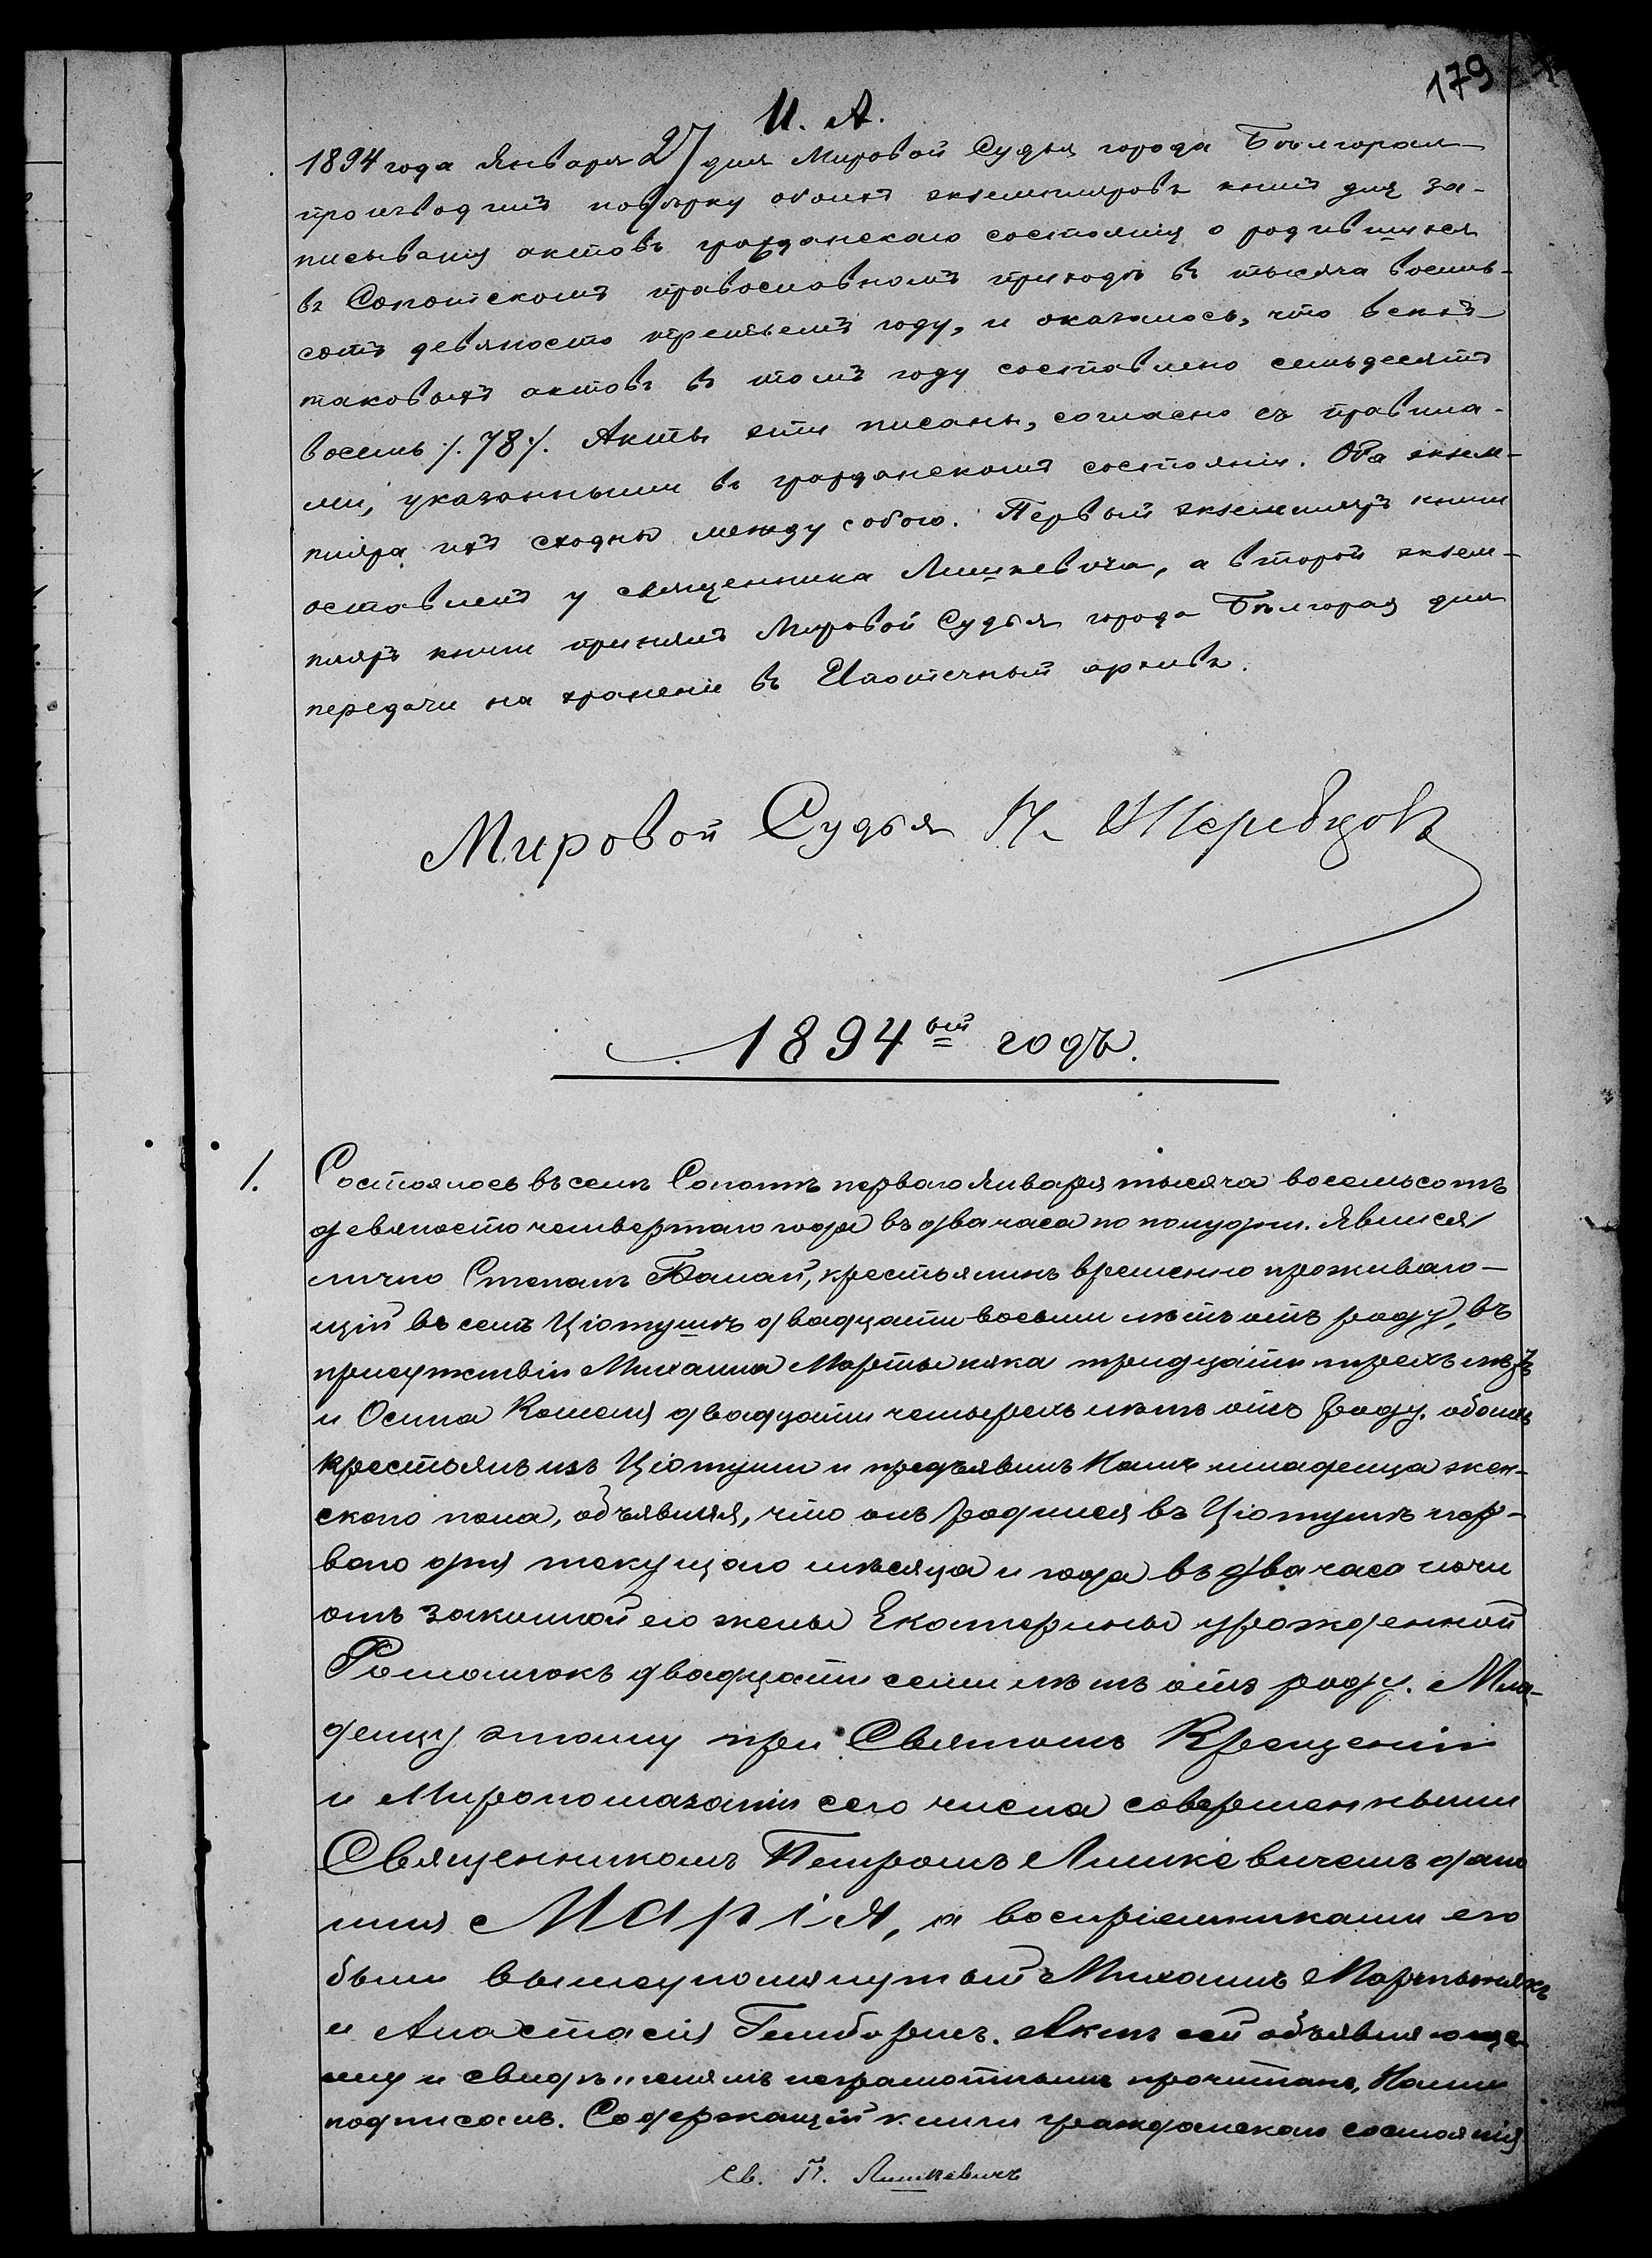 179
И. А.
1894 года Января 27 дня Мировой Судья города Бѣлгорая
производилъ повѣрку обоихъ экземпляровъ книгъ для за-
писыванія актовъ гражданскаго состоянія о родившихся
въ Сопотскомъ православномъ приходѣ въ тысяча восемь-
сотъ девяносто третьемъ году, и оказалось, что всехъ
таковыхъ актовъ въ томъ году составлено семьдесятъ
восемь /. 78 /. Акты эти писаны, согласно съ правила-
ми, указанными въ гражданскомъ состояніи. Оба экзем-
пляра ихъ сходны между собою. Первый экземпляръ книги
оставленъ у священника Лишкевича, а второй экзем-
пляръ книги принялъ Мировой Судья города Бѣлгорая для
передачи на храненіе въ Ипотечный архивъ.
Мировой Судья П. Жеребцовъ
1894ый годъ.
1. Состоялось въ селѣ Сопотѣ перваго Января тысяча восемьсотъ
девяносто четвертаго года въ два часа по полудни. Явился
лично Степанъ Балай, крестьянинъ временно проживаю-
щій въ селѣ Ціотушѣ двадцати восьми лѣтъ отъ роду, въ
присутствіи Михаила Мартыняка тридцати трехъ лѣтъ
и Осипа двадцати четырехъ лѣтъ отъ роду. обоихъ
крестьянъ изъ Ціотуши и предъявилъ Намъ младенца жен-
скаго пола, объявляя, что онъ родился въ Ціотушѣ пер-
ваго дня текущаго мѣсяца и года въ два часа ночи
отъ законной его жены Екатерины урожденной
двадцати семи лѣтъ отъ роду. Мла-
денцу этому при Святомъ Крещеніи
и Миропомазаніи сего числа совершенными
Священникомъ Петромъ Лишкевичемъ дано
имя Марія, а воспріемниками его
были вышеупомянутый Михаилъ Мартынякъ
и Анастасія. Актъ сей объявляюще-
му и свидѣтелямъ неграмотнымъ прочитанъ, Нами
подписанъ. Содержащій книги гражданскаго состоянія
Св. П. Лишкевичъ